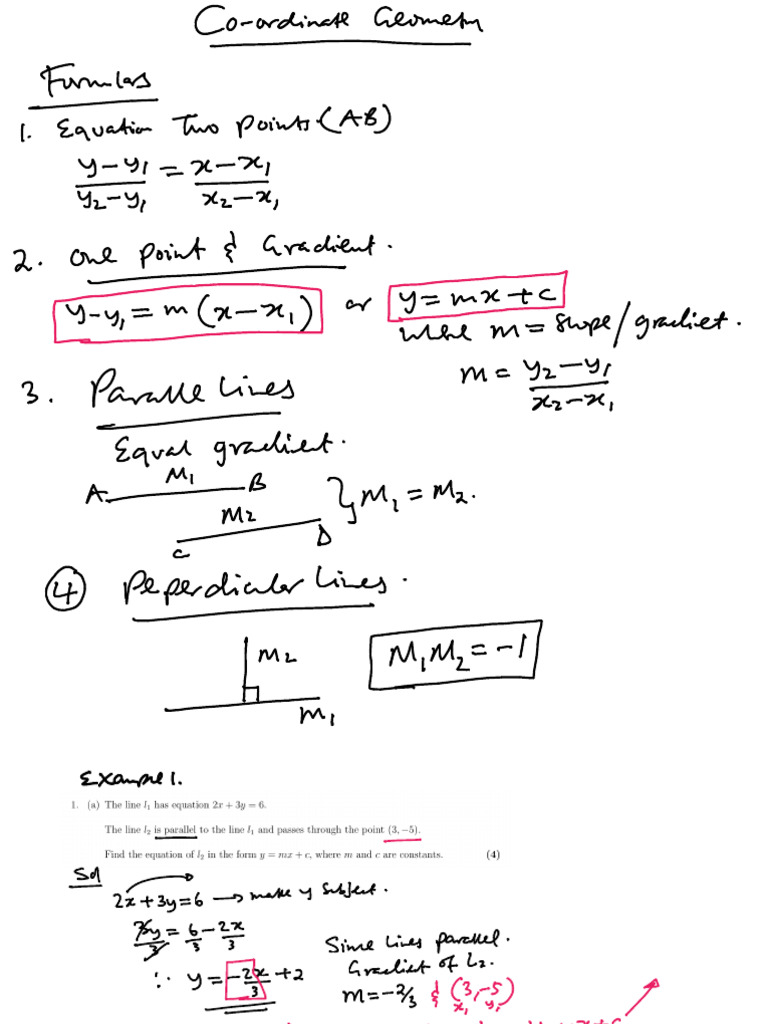 Co-ordinate Geometry
Formulas
1. Equation Two points (AB)
y-y₁/y₂-y₁ = x-x₁/x₂-x₁
2. One point & Gradient.
y-y₁ = m(x-x₁) or y = mx+c
where m = slope/gradient.
m = y₂-y₁/x₂-x₁
3. Paralle Lines
Equal gradient.
A M₁ B
M₂ } M₁ = M₂.
C D
④ Peperdicular Lines.
M₂ M₁M₂ = -1
m₁
Example 1.
1. (a) The line l₁ has equation 2x + 3y = 6.
The line l₂ is parallel to the line l₁ and passes through the point (3, −5).
Find the equation of l₂ in the form y = mx + c, where m and c are constants. (4)
Sol
2x+3y=6 → make y subject.
3y/3 = 6/3 - 2x/3
∴ y = -2x/3 + 2
Since lines parallel.
Gradient of L₂.
m = -2/3 & (3,-5)
x₁ y₁